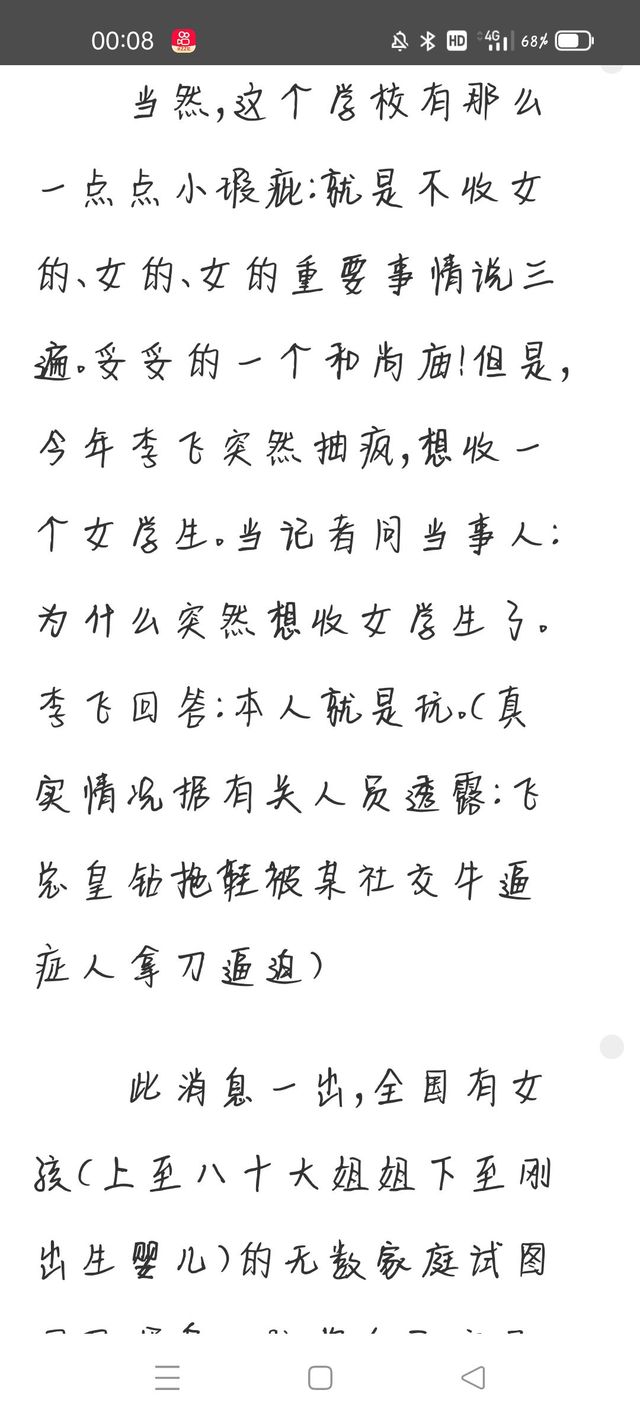 00:08 HD 4G 68%
当然,这个学校有那么
一点点小瑕疵:就是不收女
的、女的、女的重要事情说三
遍。妥妥的一个和尚庙!但是,
今年李飞突然抽疯,想收一
个女学生。当记者问当事人:
为什么突然想收女学生了。
李飞回答:本人就是玩。(真
实情况据有关人员透露:飞
总皇钻拖鞋被某社交牛逼
症人拿刀逼迫)
此消息一出,全国有女
孩(上至八十大姐姐下至刚
出生婴儿)的无数家庭试图